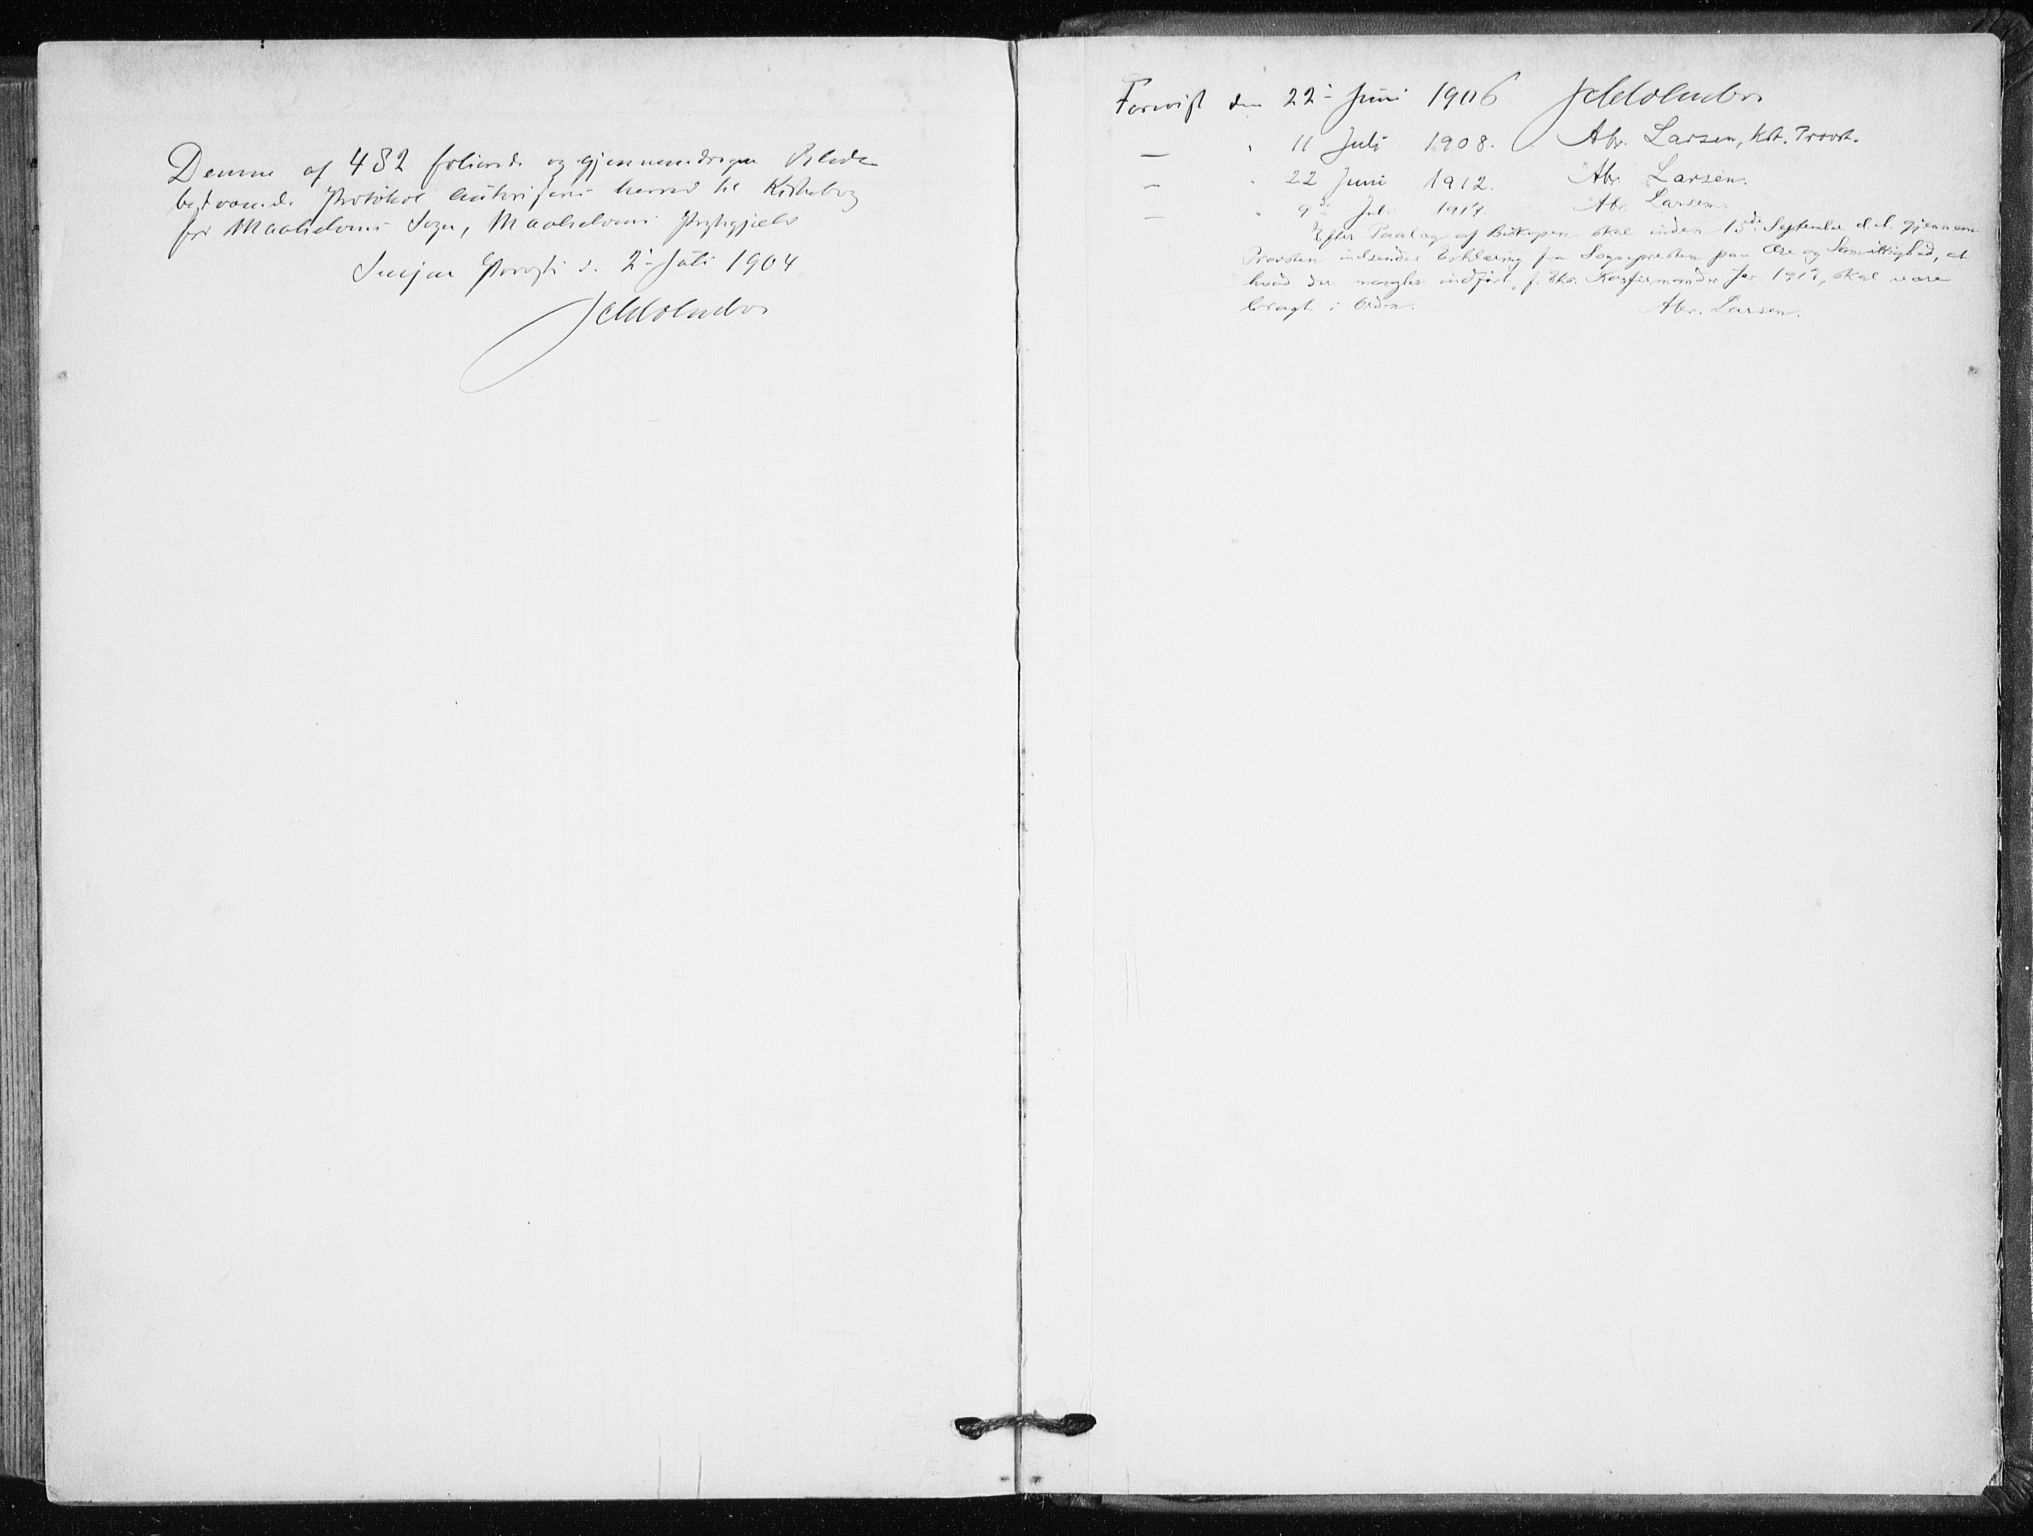 Denne af 432 folierede og gjennemdragne Blade
bestaaende Protokol autoriseres herved til Kirkebog
for Maalselvens Sogn, Maalselvens Prestegjeld
Senjen Provsti d. 2 Juli 1904
Forevist den 22 Juni 1906
— " 11 Juli 1908. Abr. Larsen, kst. Provst.
— " 22 Juni 1912. Abr. Larsen.
— " 9de Juli 1917 Abr. Larsen
Efter Paalæg af Biskopen skal inden 15de September d.A. gjennem
Provsten indsendes Erklæring fra Sognepresten paa Ære og Samvittighed, at
hvad der mangler indført, f. Eks. Konfirmander for 1917, skal være
bragt i Orden. Abr. Larsen.